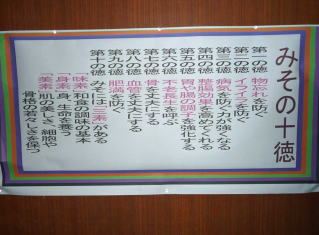 みその十徳
第一の徳 物忘れを防ぐ
第二の徳 イライラを防ぐ
第三の徳 病気を防ぐ力が強くなる
第四の徳 整腸効果を高めてくれる
第五の徳 胃や腸の調子を強化する
第六の徳 不老長生を呼ぶ
第七の徳 骨を丈夫にする
第八の徳 血管を丈夫にする
第九の徳 肥満を防ぐ
第十の徳 みそは三素がある
「味素」和食の調味の基本
「身素」身、生命を養う
「美素」肌の美しさ、細胞や
骨格の若々しさを保つ